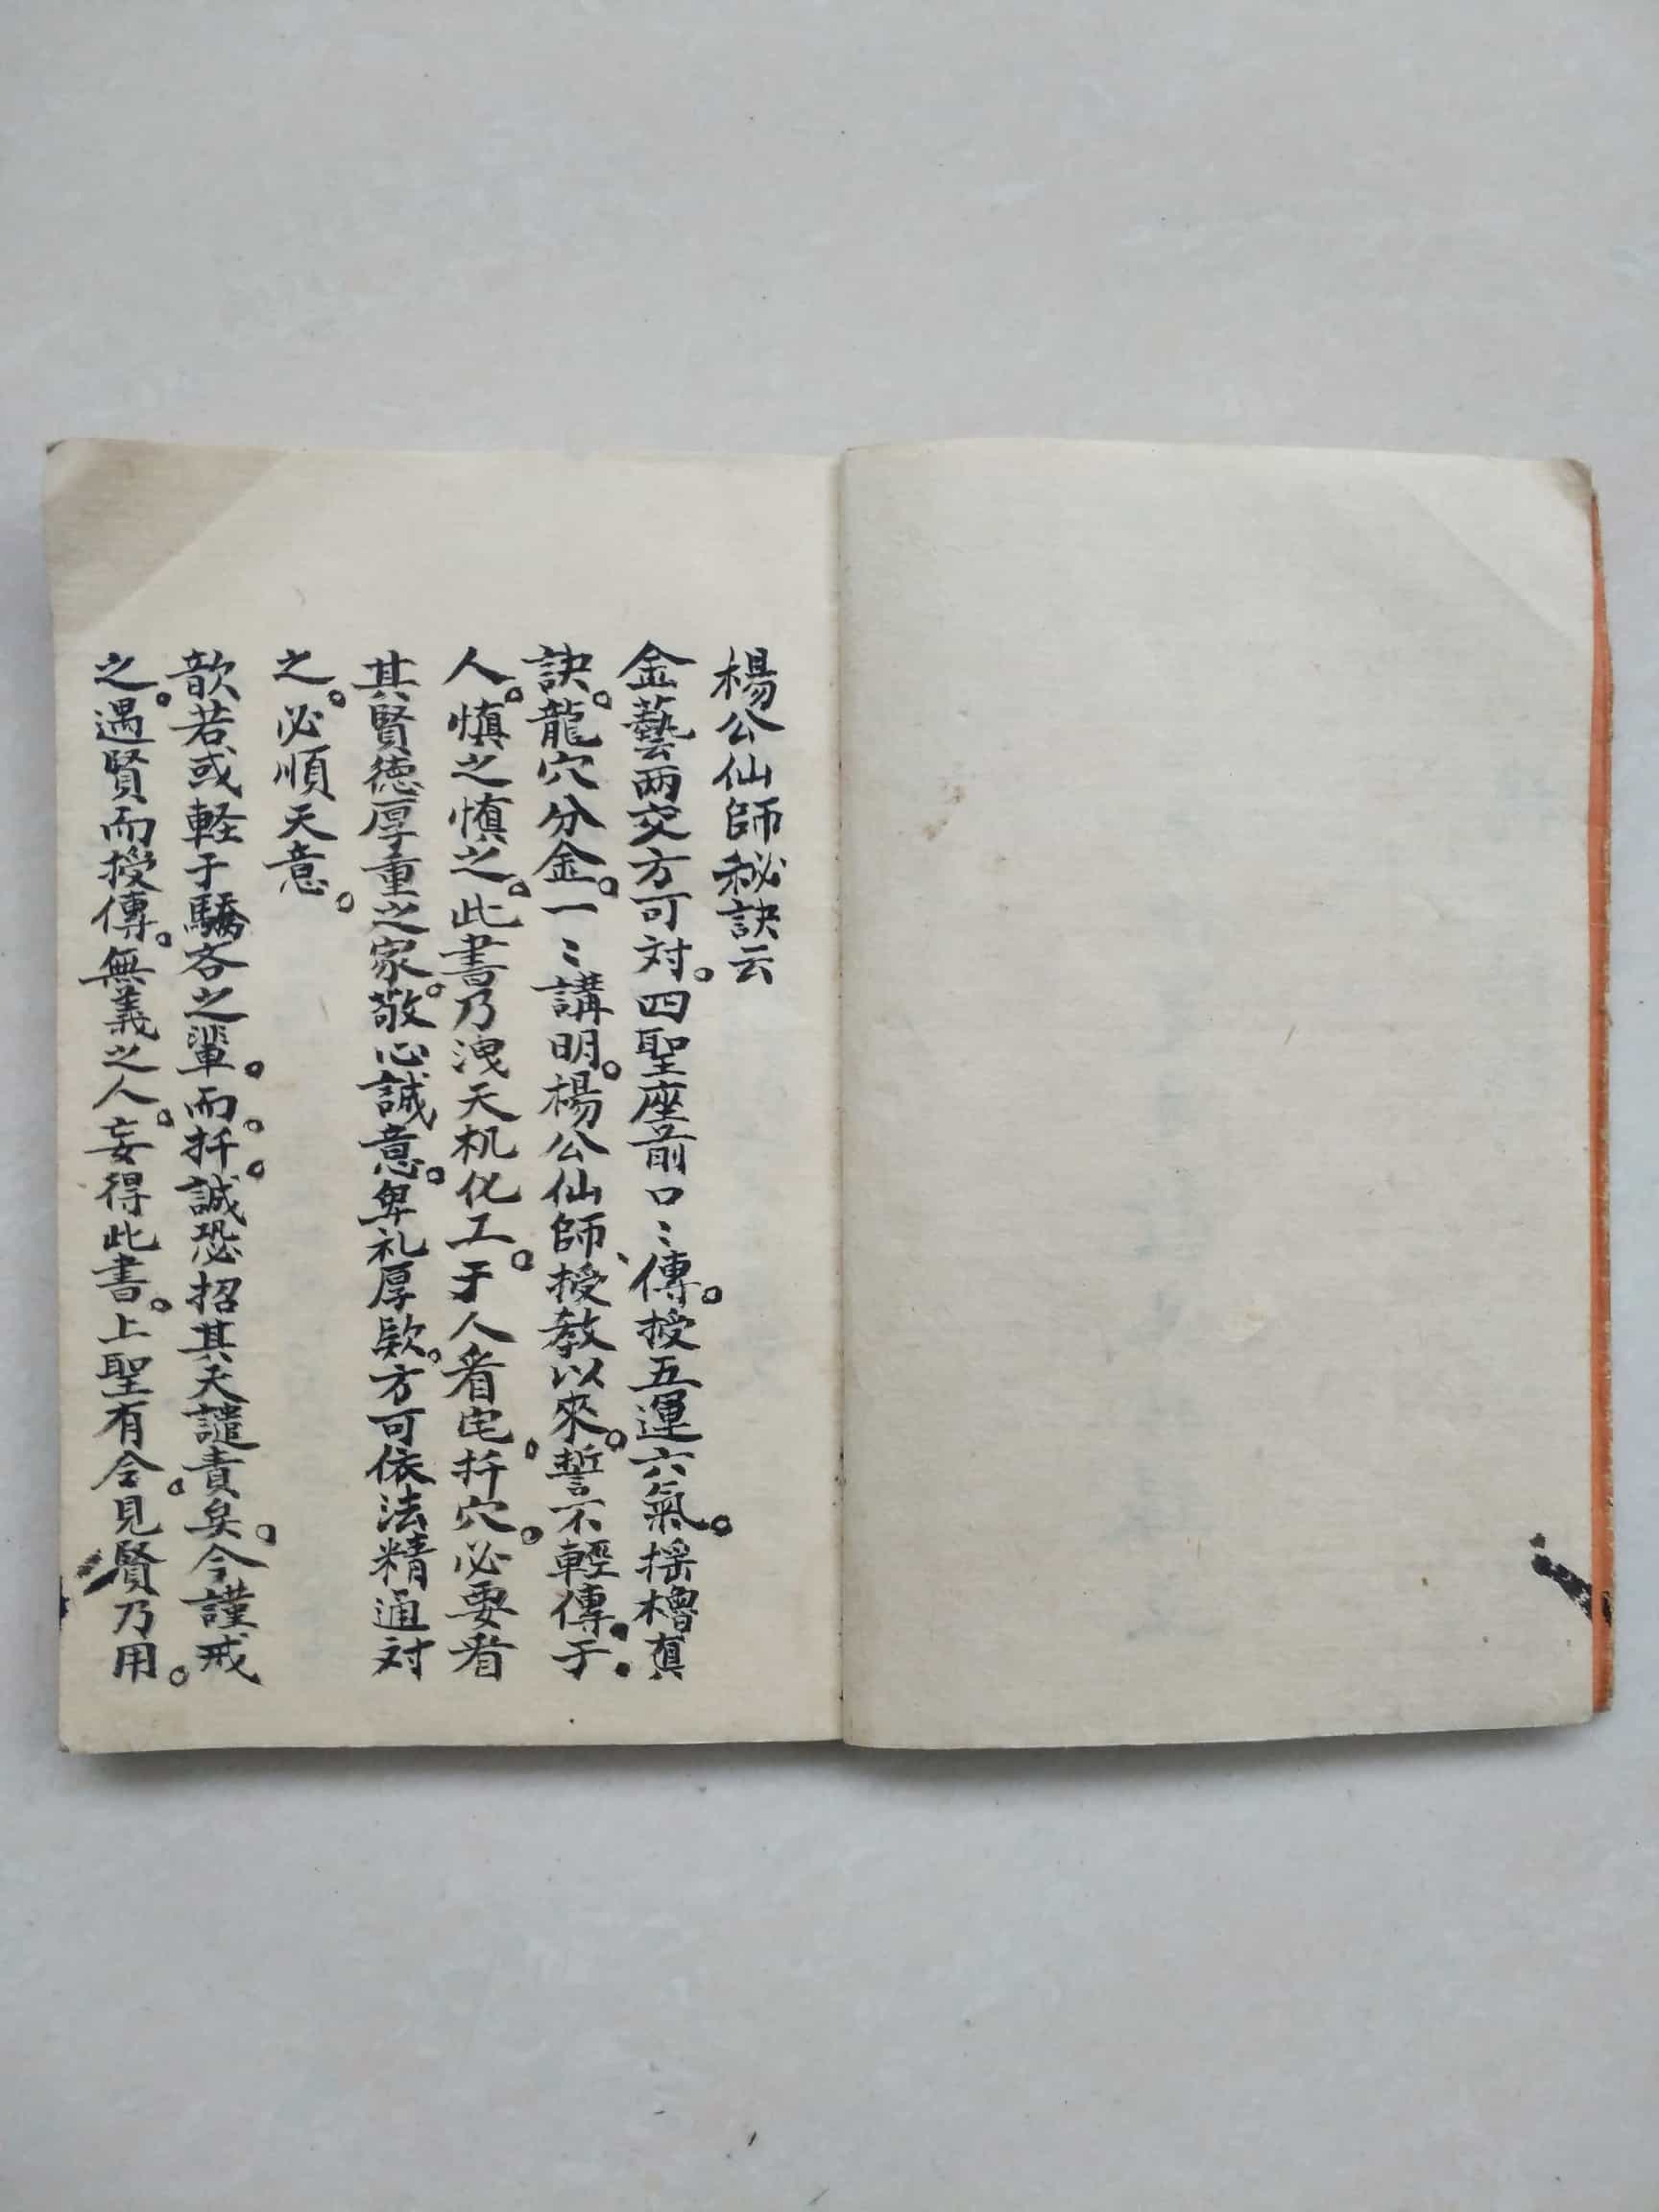 楊公仙師秘訣云
金藝两交方可対。四聖座前口〻傳。授五運六氣。揺櫓真
訣。龍穴分金。一〻講明。楊公仙師、授教以來。誓不輕傳于
人。慎之慎之。此書乃洩天机化工。于人看宅。扦穴。必要看
其賢徳厚重之家。敬心誠意。卑礼厚欵。方可依法精通対
之。必順天意。
歆若或軽于驕吝之輩。而。扦。誠恐招其天譴責矣。今謹戒
之。遇賢而授傳。無義之人。妄得此書。上聖有令。見賢乃用。